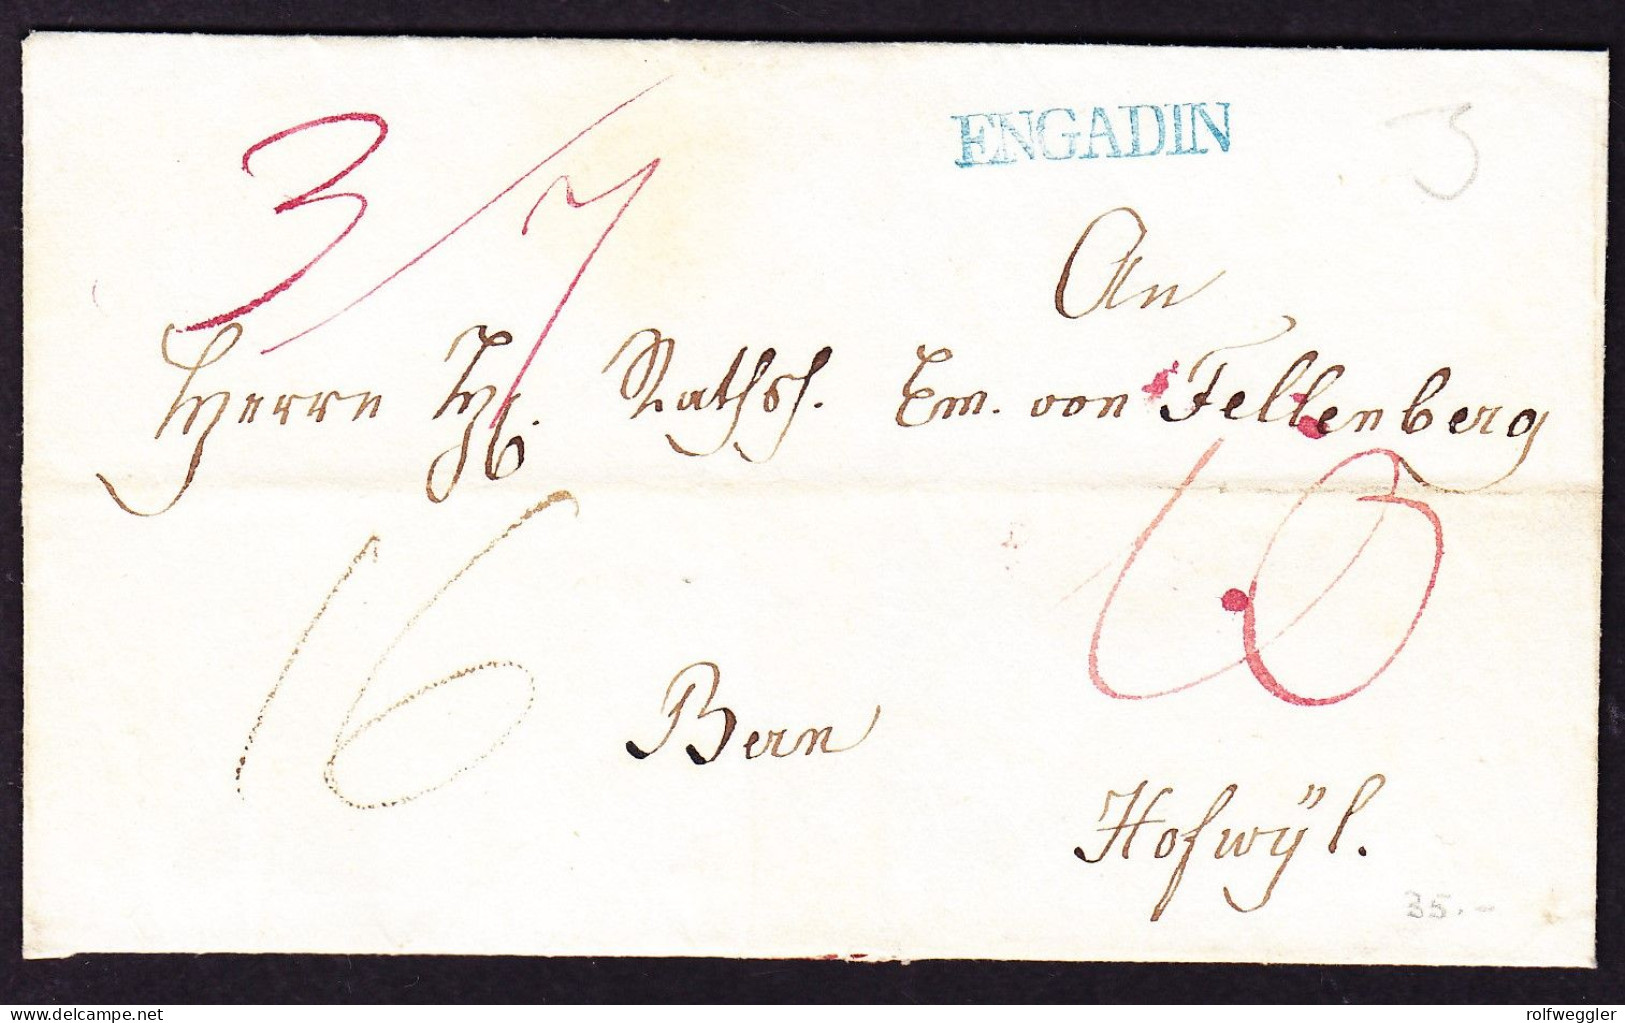 ENGADIN
3
3/7
An
Herrn Raths. Em. von Fellenberg
16
10
Bern
Hofwÿl.
35.-
www.delcampe.net
rolfweggler